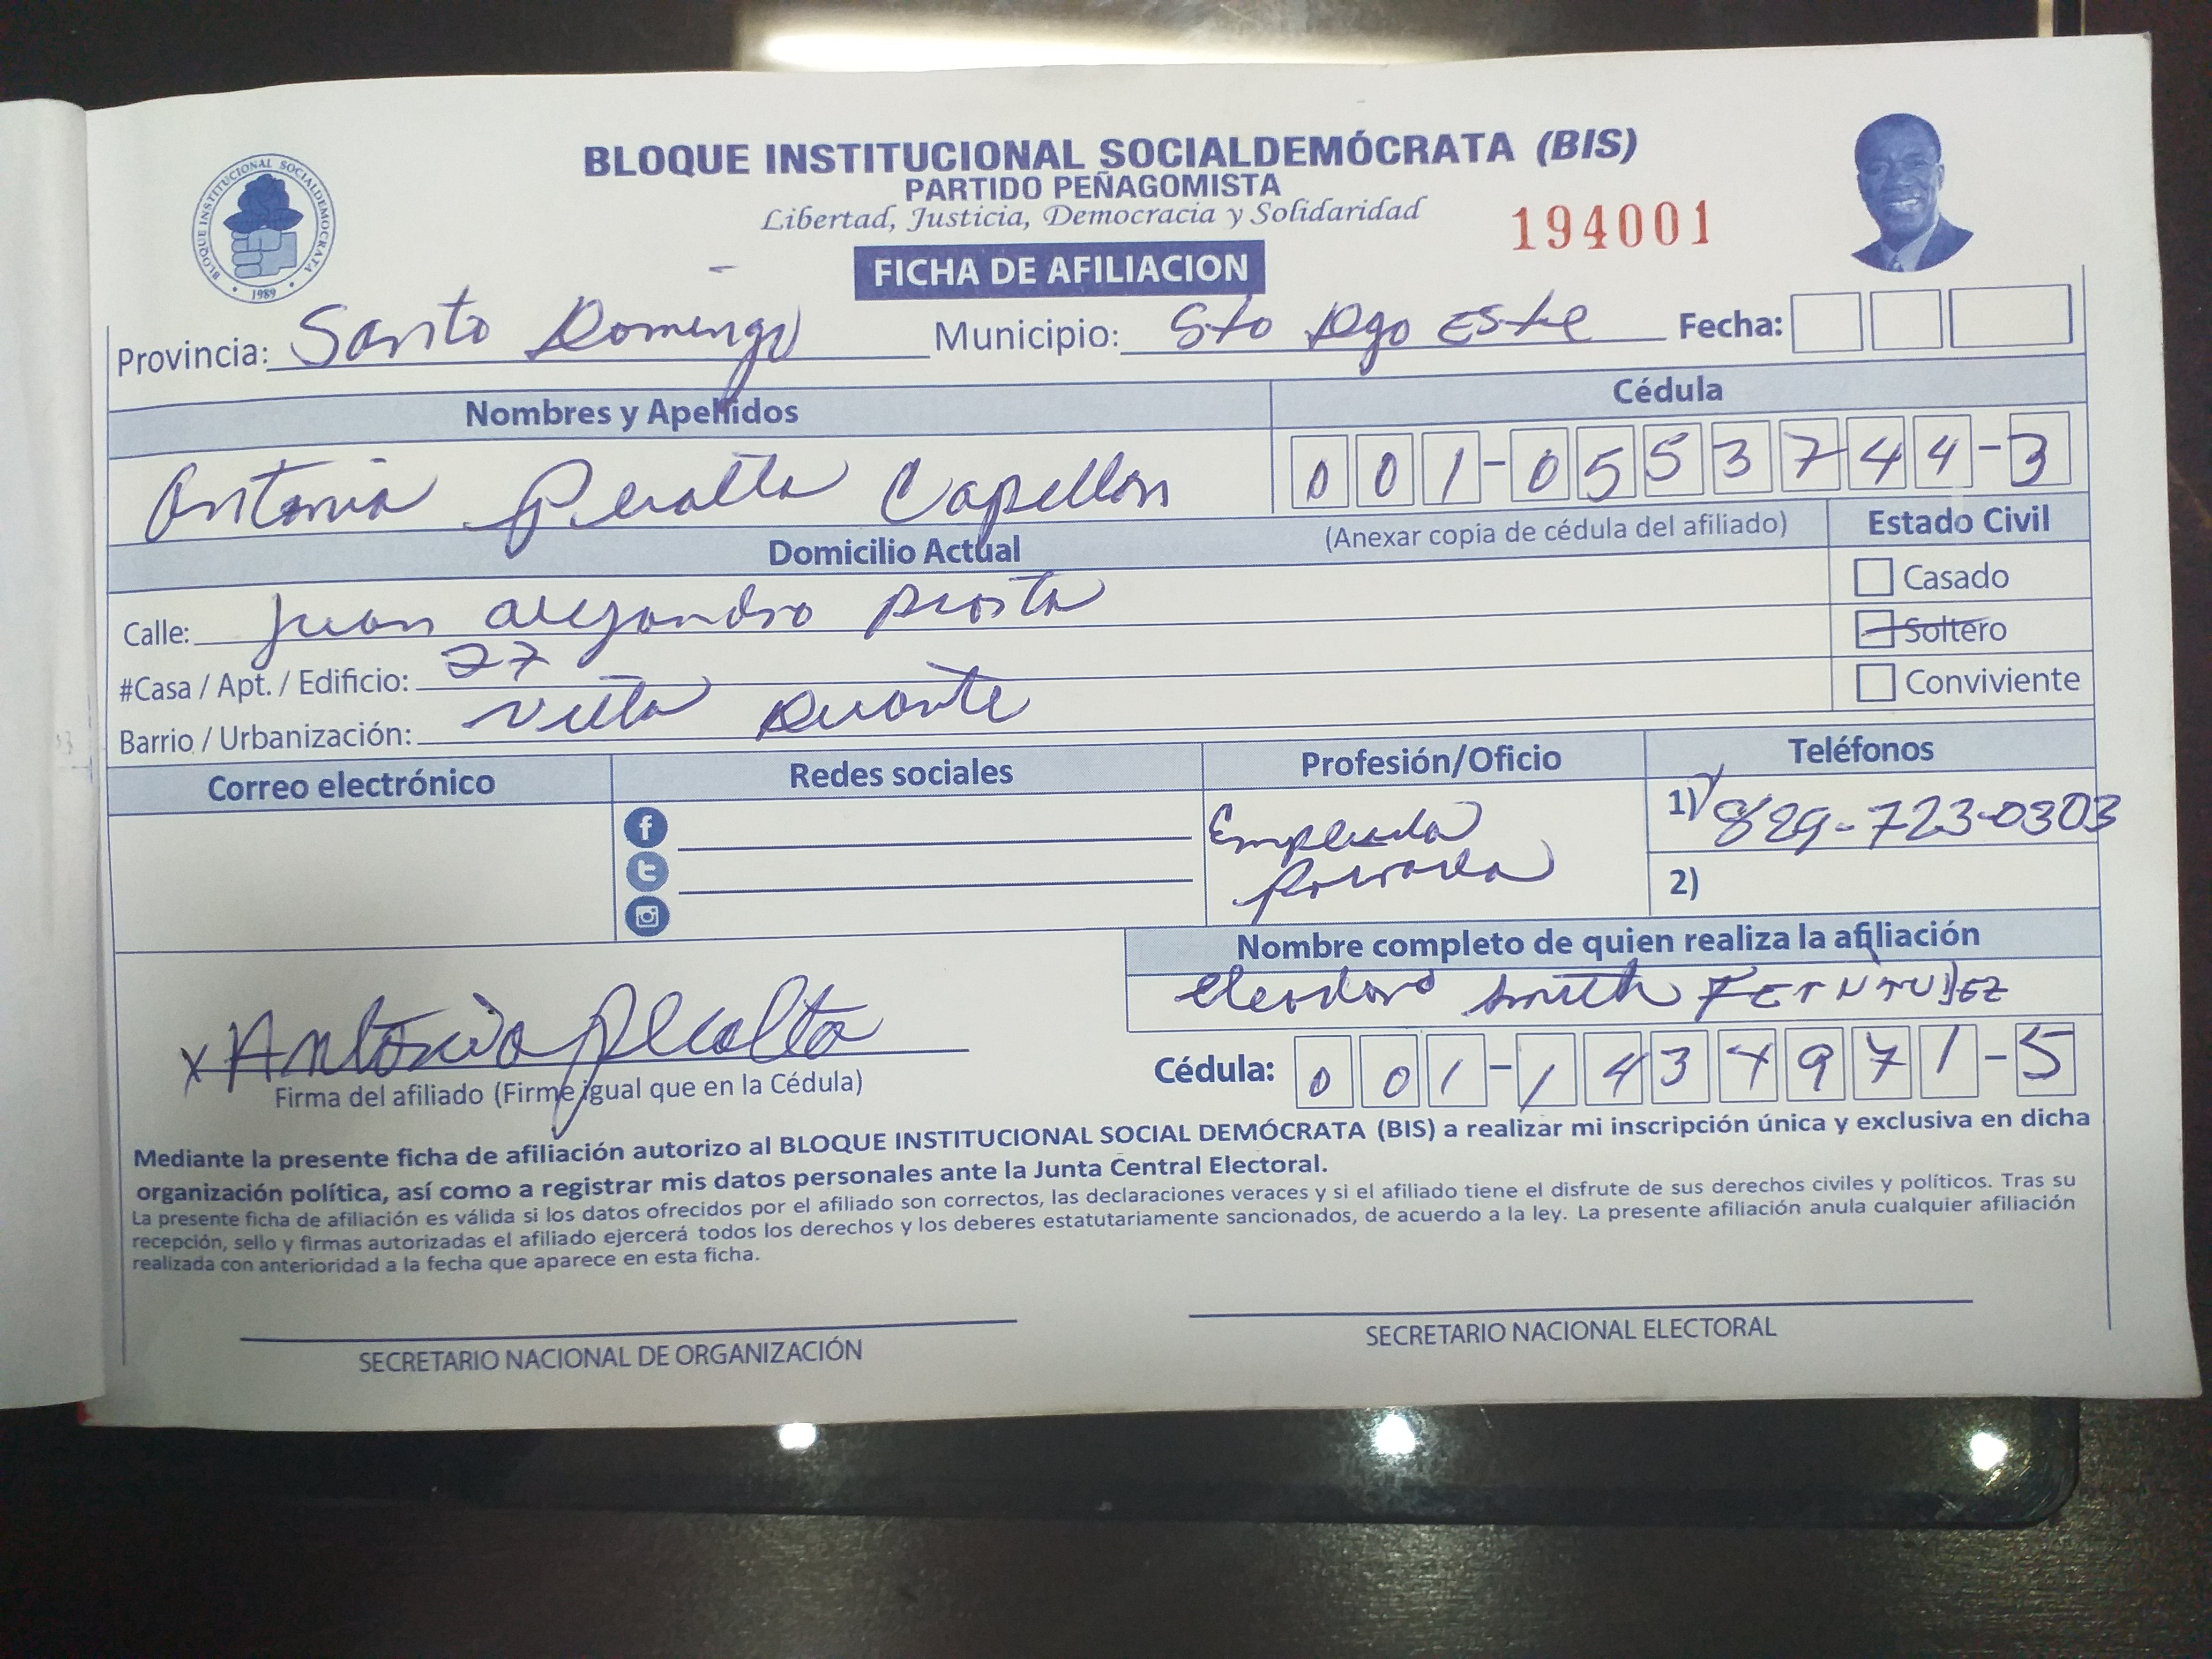 BLOQUE INSTITUCIONAL SOCIALDEMOCRATA
1989
BLOQUE INSTITUCIONAL SOCIALDEMÓCRATA (BIS)
PARTIDO PEÑAGOMISTA
Libertad, Justicia, Democracia y Solidaridad
194001
FICHA DE AFILIACION
Provincia: Santo Domingo Municipio: Sto Dgo Este Fecha:
Nombres y Apellidos Cédula
Antonia Peralta Capellan 001-0553744-3
Domicilio Actual (Anexar copia de cédula del afiliado) Estado Civil
Calle: Juan Alejandro Acosta Casado
#Casa / Apt. / Edificio: 27 Soltero
Barrio / Urbanización: Villa Duarte Conviviente
Correo electrónico Redes sociales Profesión/Oficio Teléfonos
Empleada 1) 829-723-0303
Privada 2)
Nombre completo de quien realiza la afiliación
Eleodoro Smith FERNANDEZ
x Antonia Peralta
Cédula: 001-1434971-5
Firma del afiliado (Firme igual que en la Cédula)
Mediante la presente ficha de afiliación autorizo al BLOQUE INSTITUCIONAL SOCIAL DEMÓCRATA (BIS) a realizar mi inscripción única y exclusiva en dicha
organización política, así como a registrar mis datos personales ante la Junta Central Electoral.
La presente ficha de afiliación es válida si los datos ofrecidos por el afiliado son correctos, las declaraciones veraces y si el afiliado tiene el disfrute de sus derechos civiles y políticos. Tras su
recepción, sello y firmas autorizadas el afiliado ejercerá todos los derechos y los deberes estatutariamente sancionados, de acuerdo a la ley. La presente afiliación anula cualquier afiliación
realizada con anterioridad a la fecha que aparece en esta ficha.
SECRETARIO NACIONAL DE ORGANIZACIÓN SECRETARIO NACIONAL ELECTORAL